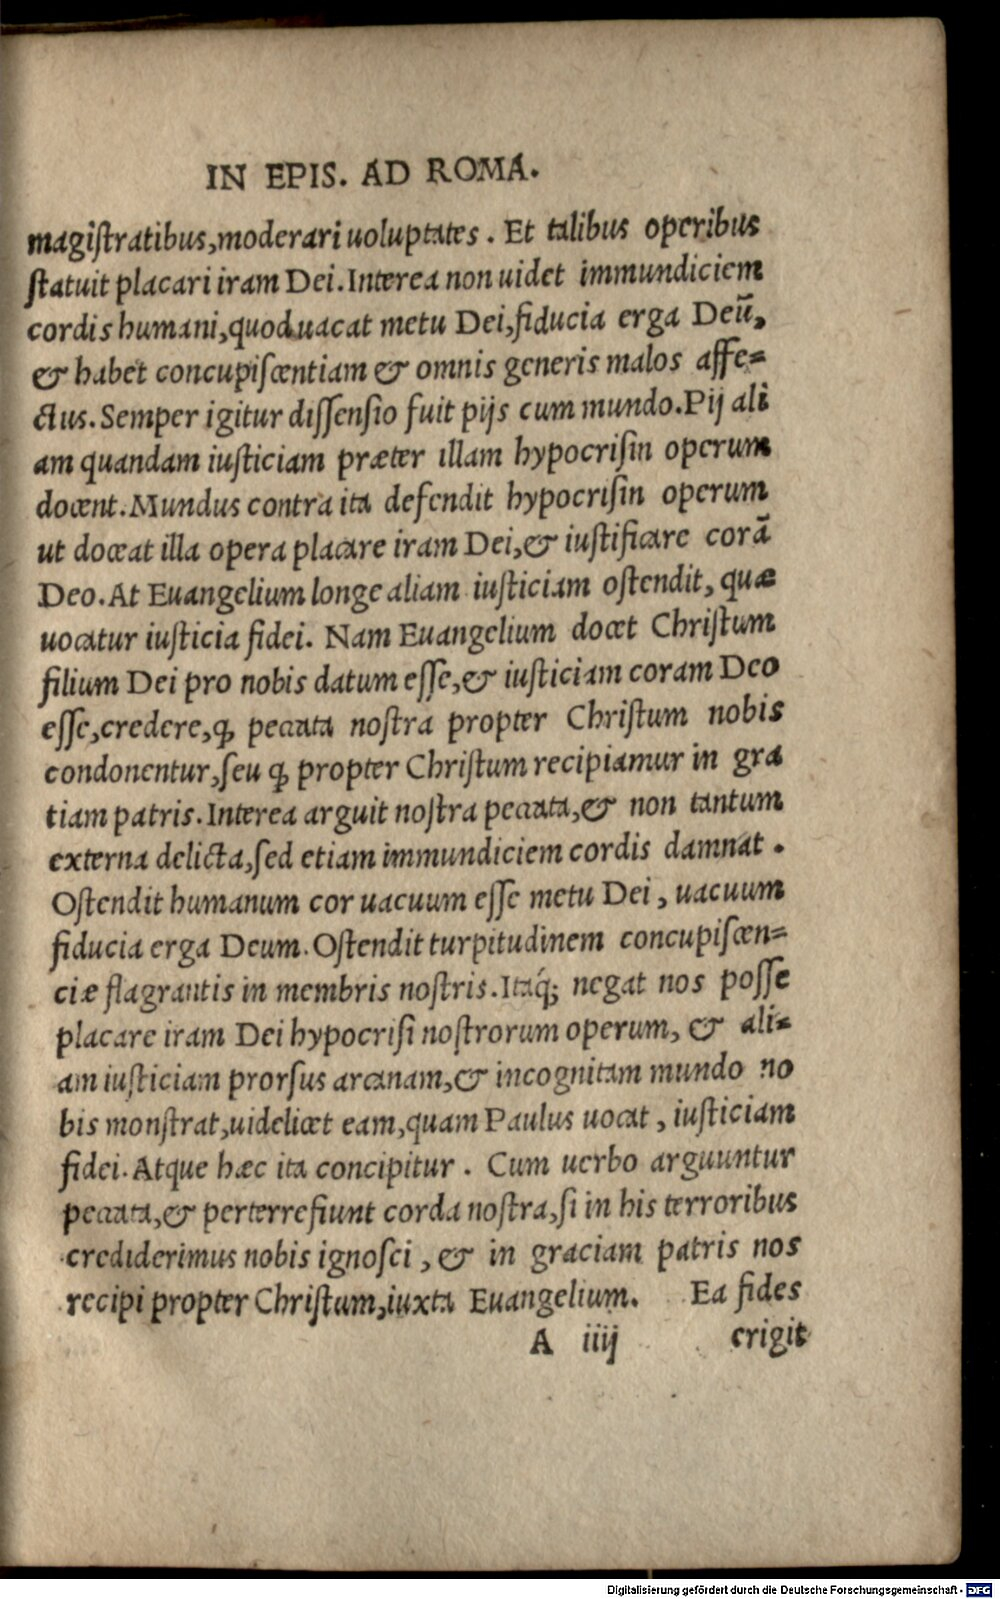 IN EPIS. AD ROMA.
magiſtratibus,moderari uoluptates. Et talibus operibus
ſtatuit placari iram Dei.Interea non uidet immundiciem
cordis humani,quod uacat metu Dei,fiducia erga Deū,
& habet concupiſcentiam & omnis generis malos affe=
ctus.Semper igitur diſſenſio fuit pijs cum mundo.Pij ali
am quandam iuſticiam præter illam hypocriſin operum
docent.Mundus contra ita defendit hypocriſin operum
ut doceat illa opera placare iram Dei,& iuſtificare corā
Deo.At Euangelium longe aliam iuſticiam oſtendit, quæ
uocatur iuſticia fidei. Nam Euangelium docet Chriſtum
filium Dei pro nobis datum eſſe,& iuſticiam coram Deo
eſſe,credere,ꝙ peccata noſtra propter Chriſtum nobis
condonentur,ſeu ꝙ propter Chriſtum recipiamur in gra
tiam patris.Interea arguit noſtra peccata,& non tantum
externa delicta,ſed etiam immundiciem cordis damnat.
Oſtendit humanum cor uacuum eſſe metu Dei, uacuum
fiducia erga Deum.Oſtendit turpitudinem concupiſcen=
ciæ flagrantis in membris noſtris.Itaq́; negat nos poſſe
placare iram Dei hypocriſi noſtrorum operum, & ali=
am iuſticiam prorſus arcanam,& incognitam mundo no
bis monſtrat,uidelicet eam,quam Paulus uocat, iuſticiam
fidei.Atque hæc ita concipitur. Cum uerbo arguuntur
peccata,& perterrefiunt corda noſtra,ſi in his terroribus
crediderimus nobis ignoſci, & in graciam patris nos
recipi propter Chriſtum,iuxta Euangelium. Ea fides
A iiij erigit
Digitalisierung gefördert durch die Deutsche Forschungsgemeinschaft - DFG